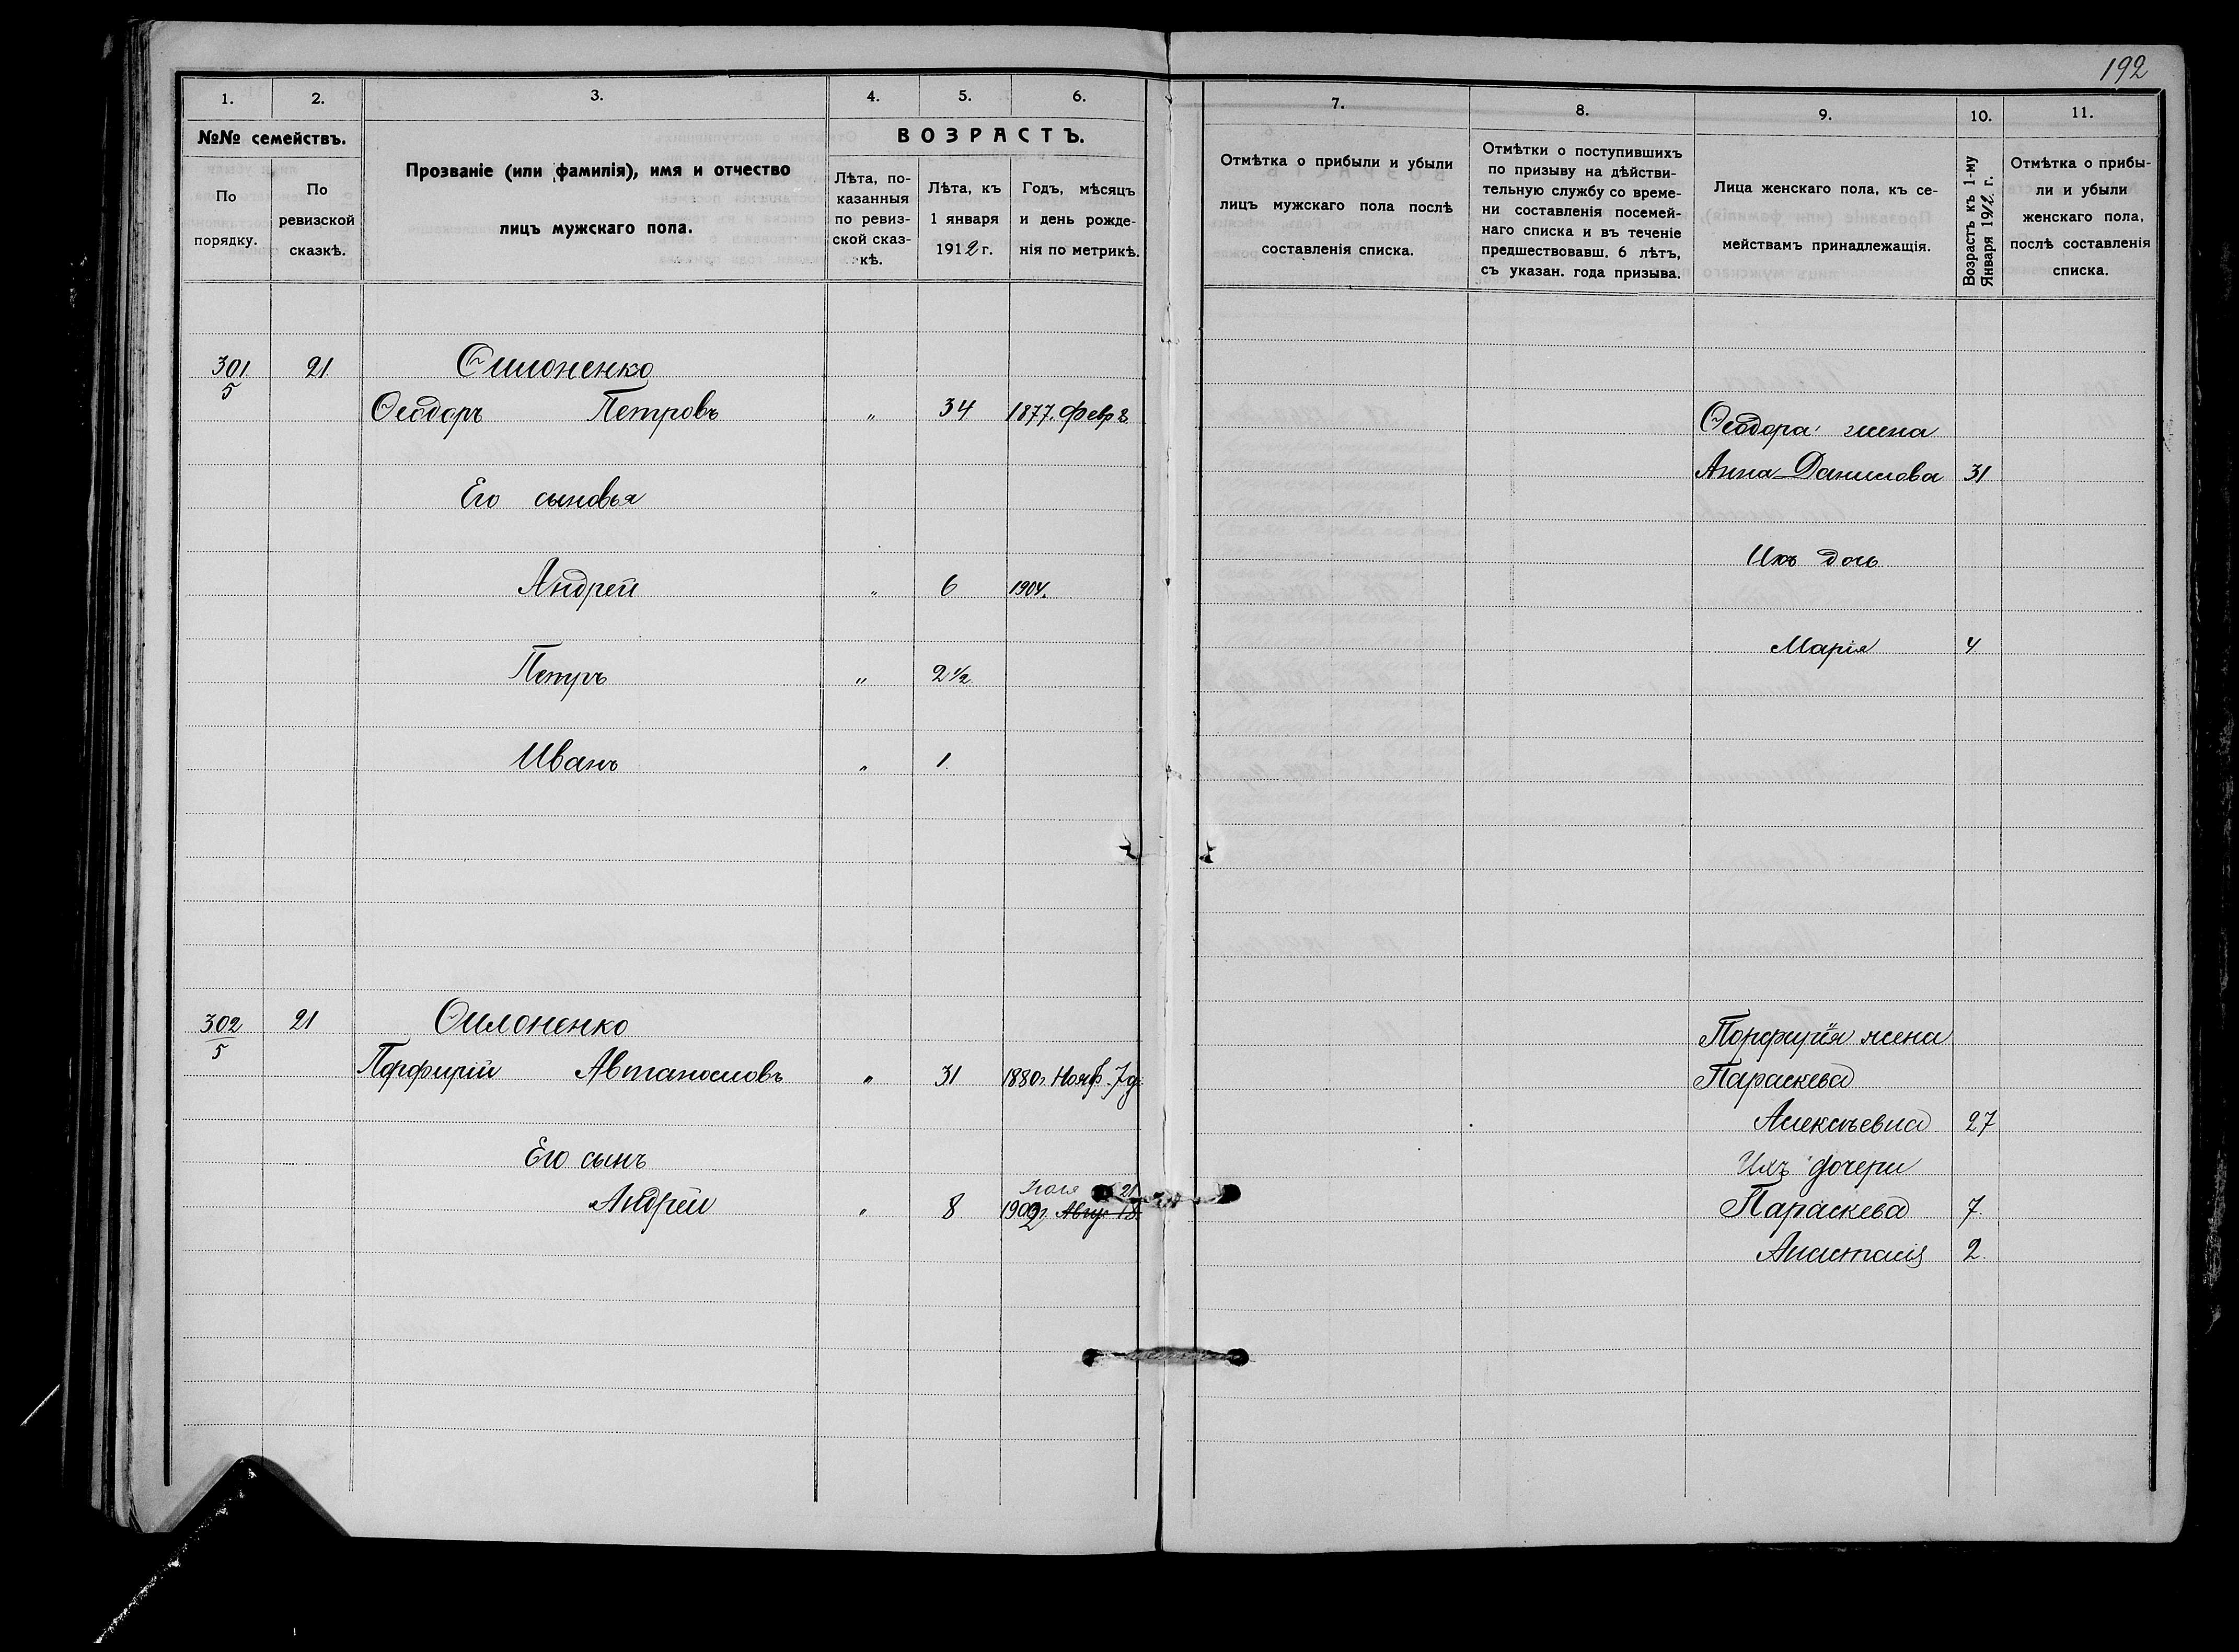 192
1. 2. 3. 4. 5. 6. 7. 8. 9. 10. 11.
№№ семействъ.
По порядку.
По ревизской сказкѣ.
Прозваніе (или фамилія), имя и отчество
лицъ мужскаго пола.
ВОЗРАСТЪ.
Лѣта, по-
казанныя
по ревиз-
ской сказ-
кѣ.
Лѣта, къ
1 января
1912 г.
Годъ, мѣсяцъ
и день рожде-
нія по метрикѣ.
Отмѣтка о прибыли и убыли
лицъ мужскаго пола послѣ
составленія списка.
Отмѣтки о поступившихъ
по призыву на дѣйстви-
тельную службу со време-
ни составленія посемей-
наго списка и въ теченіе
предшествовавш. 6 лѣтъ,
съ указан. года призыва.
Лица женскаго пола, къ се-
мействамъ принадлежащія.
Возрастъ къ 1-му
Января 1912 г.
Отмѣтка о прибы-
ли и убыли
женскаго пола,
послѣ составленія
списка.
301/5 21
Ѳеодоръ Петровъ " 34 1877. Февр 8
Ѳеодора жена
Анна Данилова 31
Его сыновья
Ихъ дочь
Андрей " 6 1904.
Марія 4
Петръ " 2 1/2
Иванъ " 1.
302/5 21 Ѳилоненко
Порфирія жена
Порфирій " 31 1880г. Нояб. 7д.
Параскева
Алексѣевна 27
Его сынъ
Ихъ дочери
21
Андрей " 8 Авгус 18
Параскева 7.
Анастасія 2.